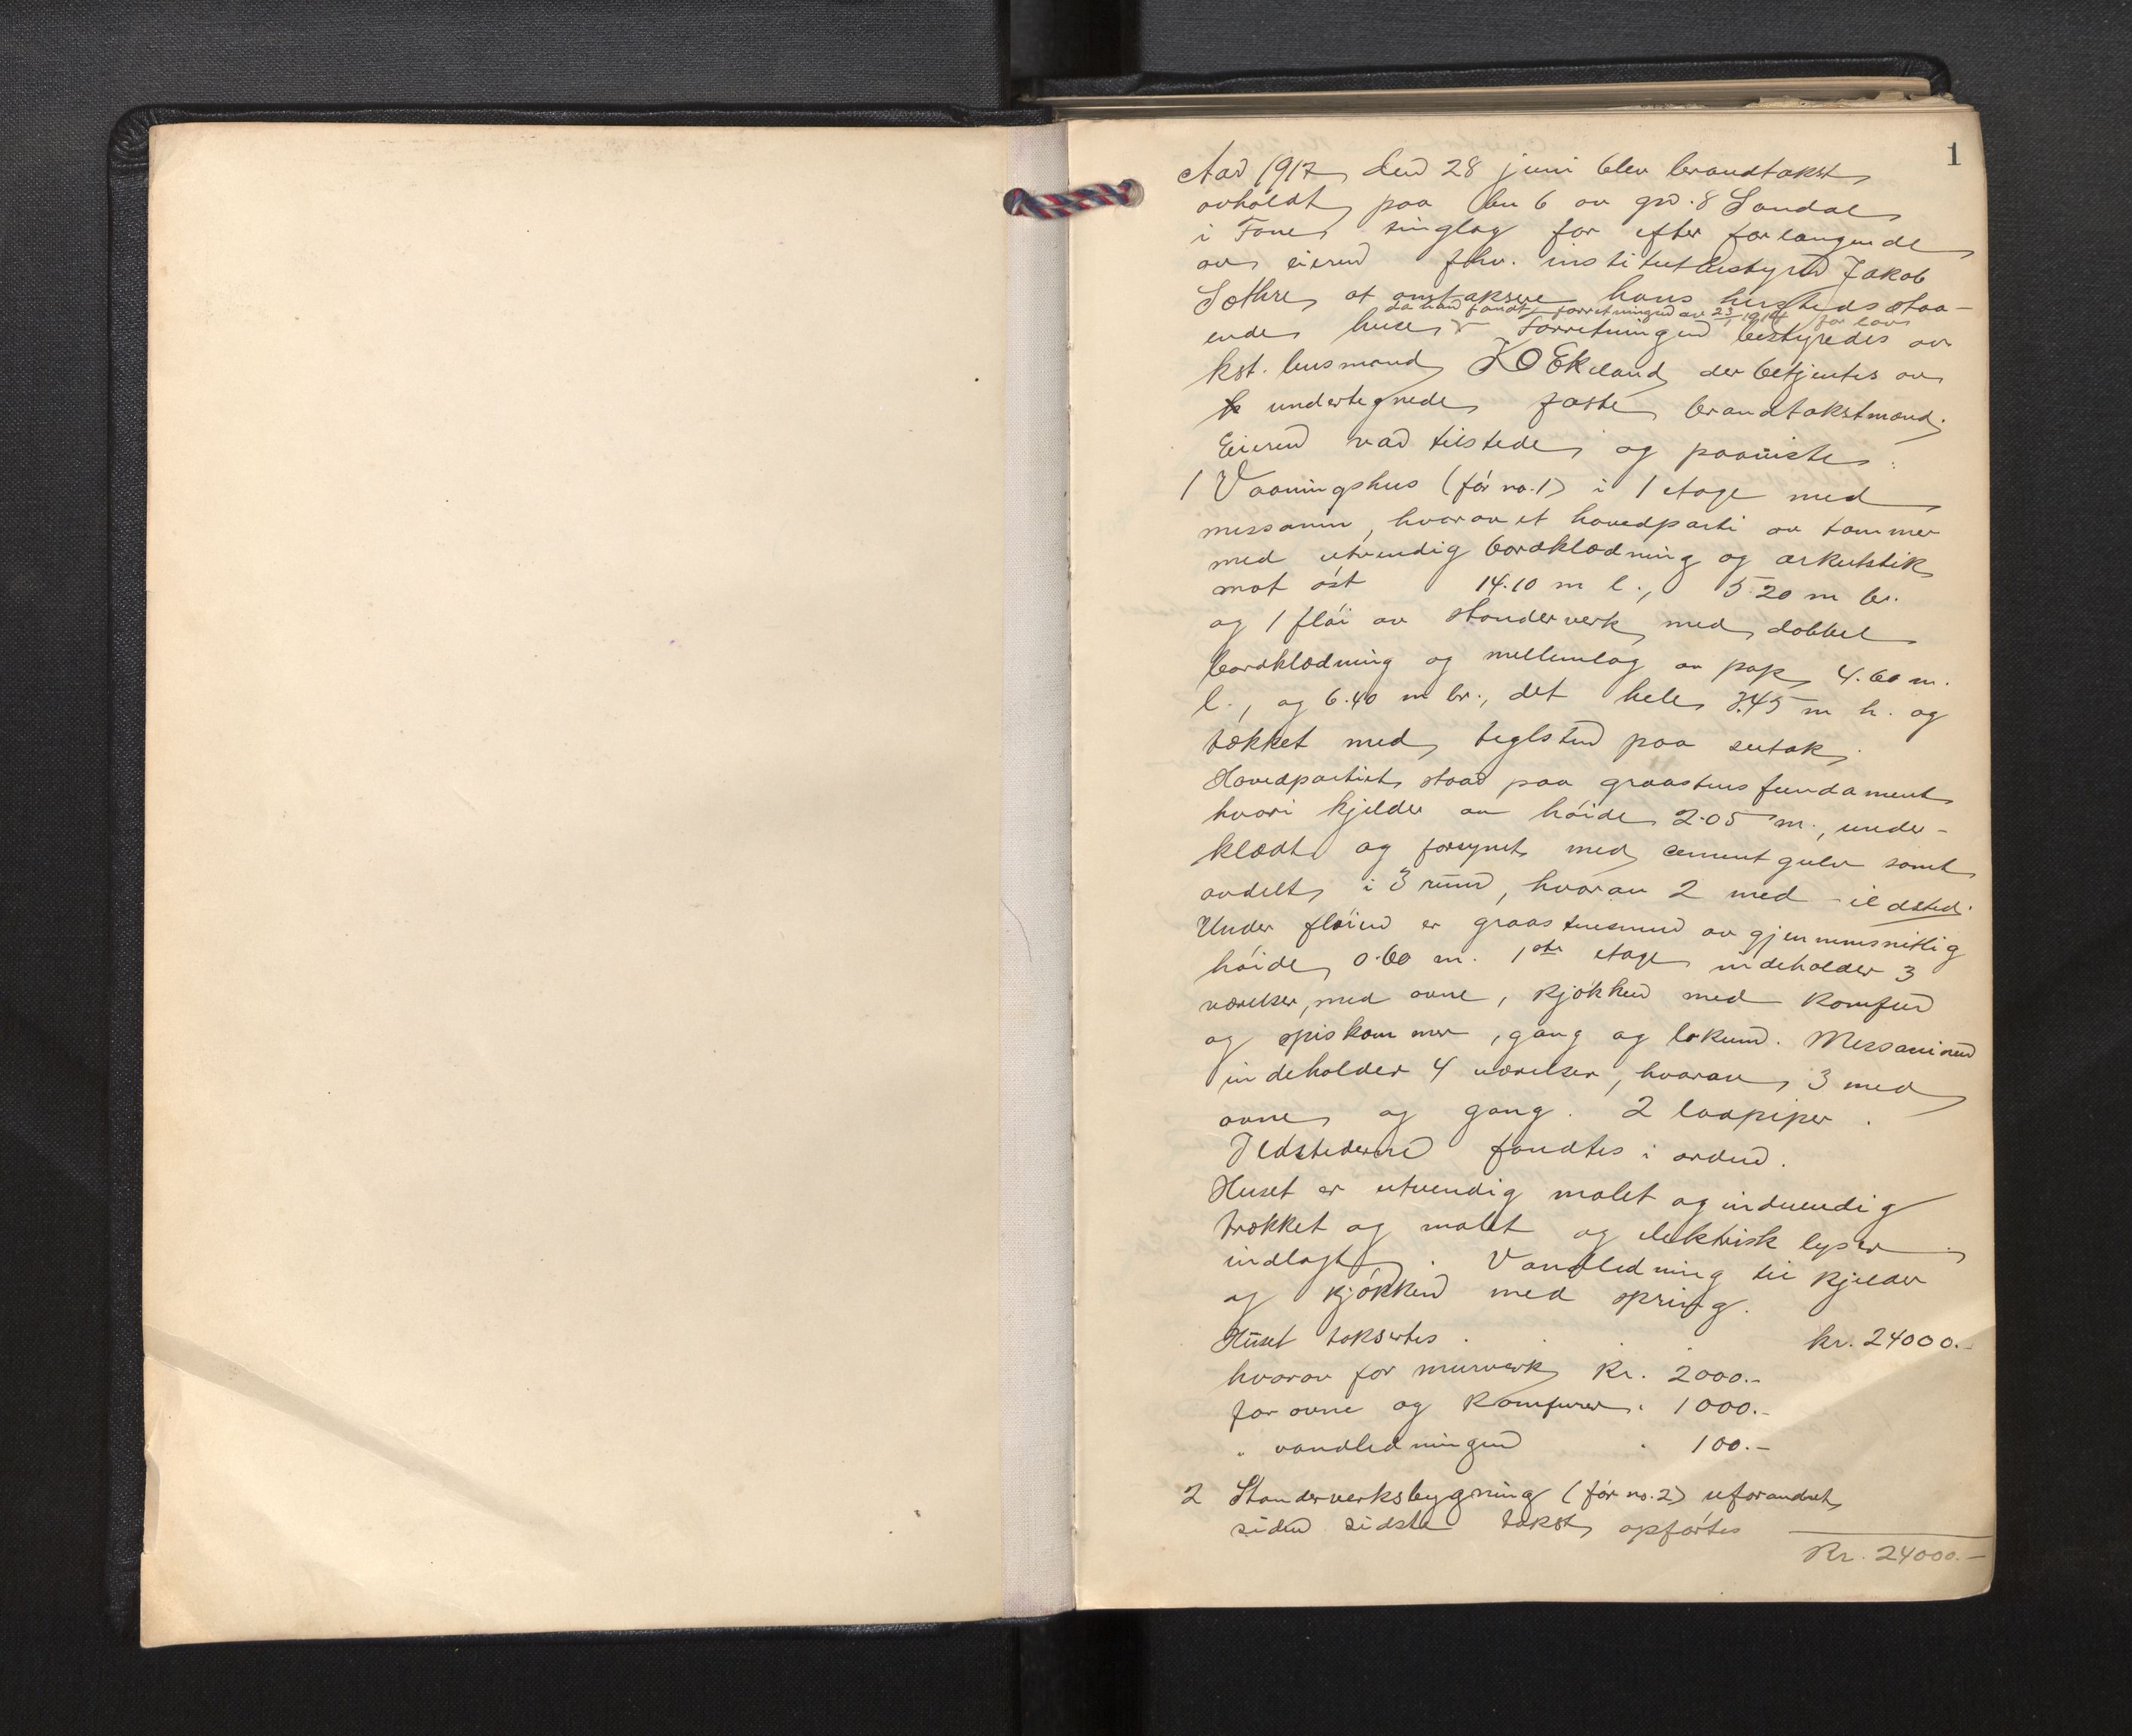 1
Aar 1917 den 28 juni blev brandtakst
avholdt paa bn 6 av gn. 8 Sandal
i Fane tinglag for efter forlangende
av eieren fhv. institutbestyrer Jakob
Sæthre at omtaksere hans hersteds staa-
da han fandt forretningen av 23/1 1914 for lav
ende huse. Forretningen bestyredes av
kst. lensmand K O Ekeland der betjentes av
undertegnede faste brandtakstmænd.
Eieren var tilstede og paaviste:
1 Vaaningshus (før no. 1) i 1 etage med
messanin, hvorav et hovedparti av tømmer
med utvendig bordklædning og arkutstik
mot øst 14.10 m l., 5.20 m br.
og 1 fløi av standerverk med dobbel
bordklædning og mellemlag av pap 4.60 m.
l., og 6.40 m br., det hele 3.45 m h. og
tækket med teglsten paa sutak.
Hovedpartiet staar paa graastens fundament
hvori kjelder av høide 2.05 m., under-
klædt og forsynet med cementgulv samt
avdelt i 3 rum, hvorav 2 med ildsted.
Under fløien er graastensmur av gjennemsnitlig
høide 0.60 m. 1ste etage indeholder 3
værelser, med ovne, kjøkken med komfur
og spiskammer, gang og lokum. Messaninen
indeholder 4 værelser, hvorav 3 med
ovne og gang. 2 løpiper.
Ildstederne fandtes i orden.
Huset er utvendig malet og indvendig
trækket og malet og elektrisk lys er
indlagt. Vandledning til kjelder
og kjøkken med spring.
Huset taksertes . . . kr. 24000.-
hvorav for murverk kr. 2000.-
for ovne og komfurer " 1000.-
" vandledningen " 100.-
2 Standerverksbygning (før no. 2) uforandret
siden sidste takst opførtes
Kr. 24000.-